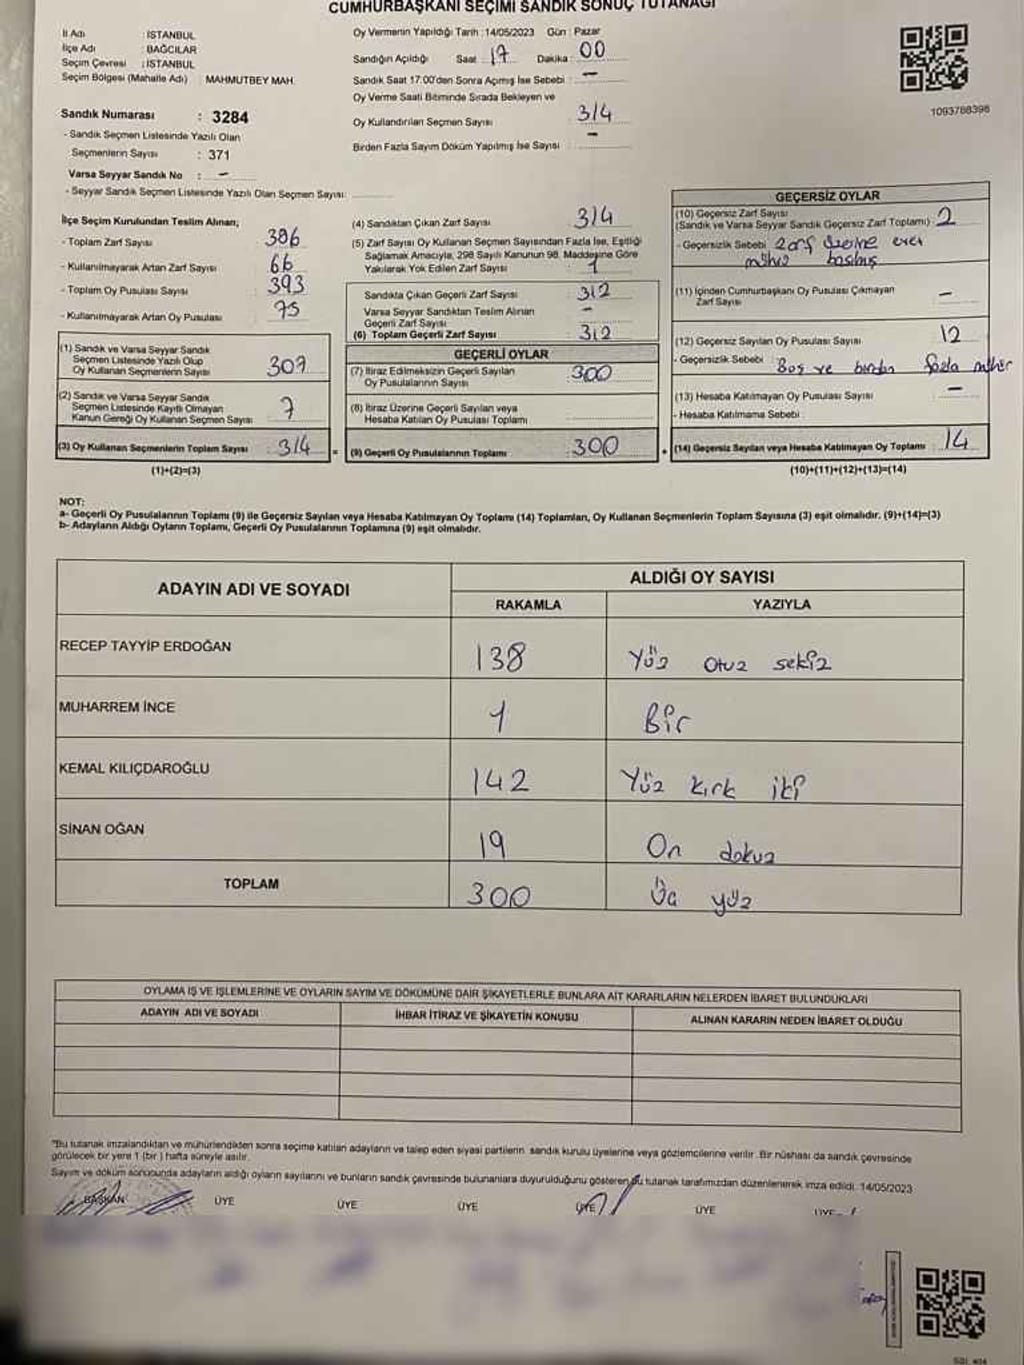 CUMHURBAŞKANI SEÇİMİ SANDIK SONUÇ TUTANAĞI
İl Adı : İSTANBUL
İlçe Adı : BAĞCILAR
Seçim Çevresi : İSTANBUL
Seçim Bölgesi (Mahalle Adı) : MAHMUTBEY MAH.
Sandık Numarası : 3284
- Sandık Seçmen Listesinde Yazılı Olan
Seçmenlerin Sayısı : 371
Varsa Seyyar Sandık No : -
- Seyyar Sandık Seçmen Listesinde Yazılı Olan Seçmen Sayısı:
Oy Vermenin Yapıldığı Tarih : 14/05/2023 Gün : Pazar
Sandığın Açıldığı Saat 17 Dakika : 00
Sandık Saat 17:00'den Sonra Açılmış İse Sebebi : -
Oy Verme Saati Bitiminde Sırada Bekleyen ve
Oy Kullandırılan Seçmen Sayısı : 314
Birden Fazla Sayım Döküm Yapılmış İse Sayısı : -
1093788398
İlçe Seçim Kurulundan Teslim Alınan;
- Toplam Zarf Sayısı 386
- Kullanılmayarak Artan Zarf Sayısı : 66
- Toplam Oy Pusulası Sayısı : 393
- Kullanılmayarak Artan Oy Pusulası : 75
(1) Sandık ve Varsa Seyyar Sandık
Seçmen Listesinde Yazılı Olup
Oy Kullanan Seçmenlerin Sayısı : 307
(2) Sandık ve Varsa Seyyar Sandık
Seçmen Listesinde Kayıtlı Olmayan
Kanun Gereği Oy Kullanan Seçmen Sayısı : 7
(3) Oy Kullanan Seçmenlerin Toplam Sayısı : 314 =
(1)+(2)=(3)
(4) Sandıktan Çıkan Zarf Sayısı : 314
(5) Zarf Sayısı Oy Kullanan Seçmen Sayısından Fazla İse, Eşitliği
Sağlamak Amacıyla, 298 Sayılı Kanunun 98. Maddesine Göre
Yakılarak Yok Edilen Zarf Sayısı :
Sandıkta Çıkan Geçerli Zarf Sayısı : 312
Varsa Seyyar Sandıktan Teslim Alınan
Geçerli Zarf Sayısı : -
(6) Toplam Geçerli Zarf Sayısı : 312
GEÇERLİ OYLAR
(7) İtiraz Edilmeksizin Geçerli Sayılan
Oy Pusulalarının Sayısı : 300
(8) İtiraz Üzerine Geçerli Sayılan veya
Hesaba Katılan Oy Pusulası Toplamı :
(9) Geçerli Oy Pusulalarının Toplamı : 300 +
GEÇERSİZ OYLAR
(10) Geçersiz Zarf Sayısı
(Sandık ve Varsa Seyyar Sandık Geçersiz Zarf Toplamı) : 2
- Geçersizlik Sebebi : Zarf üzerine evet
mührü basılmış
(11) İçinden Cumhurbaşkanı Oy Pusulası Çıkmayan
Zarf Sayısı : -
(12) Geçersiz Sayılan Oy Pusulası Sayısı : 12
- Geçersizlik Sebebi : Boş ve birden fazla mühür
(13) Hesaba Katılmayan Oy Pusulası Sayısı : -
- Hesaba Katılmama Sebebi :
(14) Geçersiz Sayılan veya Hesaba Katılmayan Oy Toplamı : 14
(10)+(11)+(12)+(13)=(14)
NOT:
a- Geçerli Oy Pusulalarının Toplamı (9) ile Geçersiz Sayılan veya Hesaba Katılmayan Oy Toplamı (14) Toplamları, Oy Kullanan Seçmenlerin Toplam Sayısına (3) eşit olmalıdır. (9)+(14)=(3)
b- Adayların Aldığı Oyların Toplamı, Geçerli Oy Pusulalarının Toplamına (9) eşit olmalıdır.
ADAYIN ADI VE SOYADI
ALDIĞI OY SAYISI
RAKAMLA YAZIYLA
RECEP TAYYİP ERDOĞAN 138 Yüz otuz sekiz
MUHARREM İNCE 1 Bir
KEMAL KILIÇDAROĞLU 142 Yüz kırk iki
SİNAN OĞAN 19 On dokuz
TOPLAM 300 Üç yüz
OYLAMA İŞ VE İŞLEMLERİNE VE OYLARIN SAYIM VE DÖKÜMÜNE DAİR ŞİKAYETLERLE BUNLARA AİT KARARLARIN NELERDEN İBARET BULUNDUKLARI
ADAYIN ADI VE SOYADI İHBAR İTİRAZ VE ŞİKAYETİN KONUSU ALINAN KARARIN NEDEN İBARET OLDUĞU
"Bu tutanak imzalandıktan ve mühürlendikten sonra seçime katılan adayların ve talep eden siyasi partilerin sandık kurulu üyelerine veya gözlemcilerine verilir. Bir nüshası da sandık çevresinde
görülecek bir yere 1 (bir ) hafta süreyle asılır.
Sayım ve döküm sonucunda adayların aldığı oyların sayılarını ve bunların sandık çevresinde bulunanlara duyurulduğunu gösteren bu tutanak tarafımızdan düzenlenerek imza edildi. 14/05/2023
BAŞKAN ÜYE ÜYE ÜYE ÜYE ÜYE ÜYE